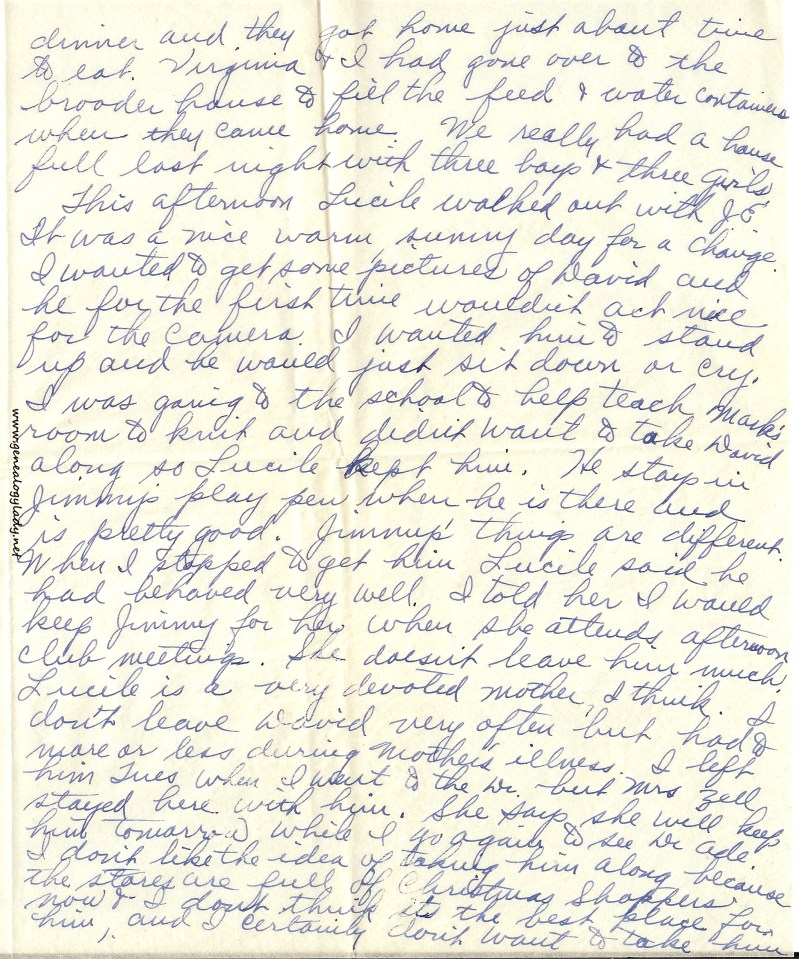 dinner and they got home just about time
to eat. Virginia & I had gone over to the
brooder house to fill the feed & water containers
when they came home. We really had a house
full last night with three boys & three girls.
This afternoon Lucile walked out with J.E.
It was a nice warm, sunny day for a change.
I wanted to get some pictures of David and
he for the first time wouldn't act nice
for the camera. I wanted him to stand
up and he would just sit down or cry.
I was going to the school to help teach Mark's
room to knit and didn't want to take David
along so Lucile kept him. He stays in
Jimmy's play pen when he is there and
is pretty good. Jimmy's things are different.
When I stopped to get him Lucile said he
had behaved very well. I told her I would
keep Jimmy for her when she attends afternoon
club meetings. She doesn't leave him much.
Lucile is a very devoted mother, I think. I
don't leave David very often but had to
more or less during Mother's illness. I left
him Tues. when I went to the Dr. but Mrs Zell
stayed here with him. She says she will keep
him tomorrow while I go again to see Dr Ade.
I don't like the idea of taking him along because
the stores are full of Christmas shoppers
now & I don't think it's the best place for
him, and I certainly don't want to take him
www.genealogylady.net